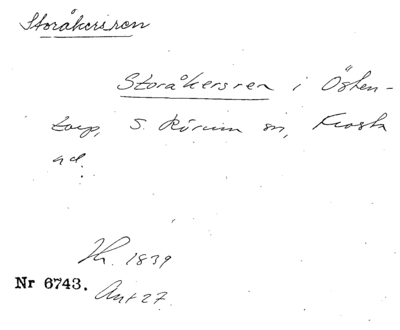 Storåkersren
Storåkersren i Östen-
torp, S. Rörum sn, Frosta
hd.
Th. 1839
Nr 6743. Ant 27.